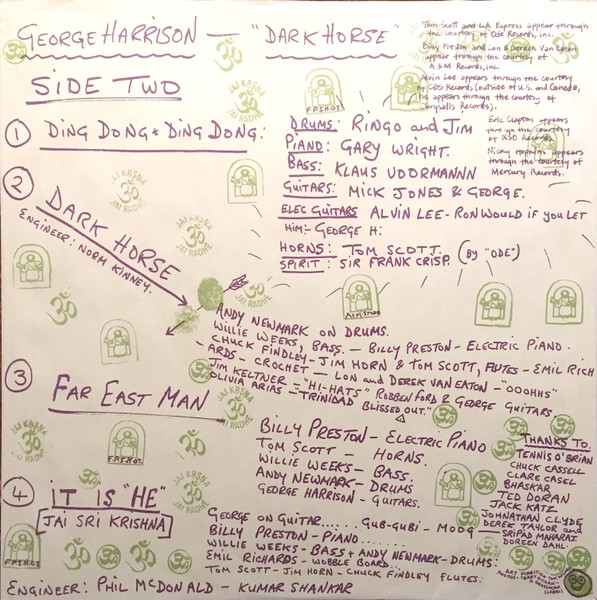 GEORGE HARRISON — "DARK HORSE"
Tom Scott and L.A. Express appear through
the courtesy of Ode Records, inc.
Billy Preston and Lon & Derrek Van Eaton
appear through the courtesy of
A & M Records, inc.
Alvin Lee appears through the courtesy
of CBS Records (outside of U.S. and Canada,
he appears through the courtesy of
Chrysalis Records).
Eric Clapton appears
through the courtesy of
RSO Records.
Nicky Hopkins appears
through the courtesy of
Mercury Records.
SIDE TWO
F.P.S.H.O.T.
① DING DONG * DING DONG:
DRUMS: RINGO and JIM
PIANO: GARY WRIGHT.
BASS: KLAUS VOORMANNN
GUITARS: MICK JONES & GEORGE.
ELEC GUITARS ALVIN LEE - RON WOULD IF YOU LET
HIM:- GEORGE H:
HORNS: TOM SCOTT. (BY "ODE")
SPIRIT: SIR FRANK CRISP.
JAI KRSNA
JAI RADHE
② DARK HORSE
ENGINEER: NORM KINNEY.
ANDY NEWMARK ON DRUMS.
WILLIE WEEKS, BASS. — BILLY PRESTON - ELECTRIC PIANO.
CHUCK FINDLEY - JIM HORN & TOM SCOTT, FLUTES - EMIL RICH
-ARDS - CROCHET — LON and DEREK VAN EATON - "OOOHHS"
JIM KELTNER - "HI-HATS" ROBBEN FORD & GEORGE GUITARS
OLIVIA ARIAS - "TRINIDAD BLISSED OUT."
③ FAR EAST MAN
BILLY PRESTON - ELECTRIC PIANO
TOM SCOTT - HORNS.
WILLIE WEEKS - BASS.
ANDY NEWMARK - DRUMS
GEORGE HARRISON - GUITARS.
THANKS TO
TENNIS O'BRIAN
CHUCK CASSELL
CLARE CASEL
BHASKAR
TED DORAN
JACK KATZ
JOHNATHAN CLYDE
DEREK TAYLOR and
SRIPAD MAHARAJ
DOREEN DAHL.
④ IT IS "HE"
JAI SRI KRISHNA
GEORGE ON GUITAR..... GUB-GUBI - MOOG
BILLY PRESTON - PIANO.......
WILLIE WEEKS - BASS + ANDY NEWMARK - DRUMS:
EMIL RICHARDS - WOBBLE BOARD...
TOM SCOTT - JIM HORN - CHUCK FINDLEY FLUTES:
ENGINEER: PHIL McDONALD - KUMAR SHANKAR